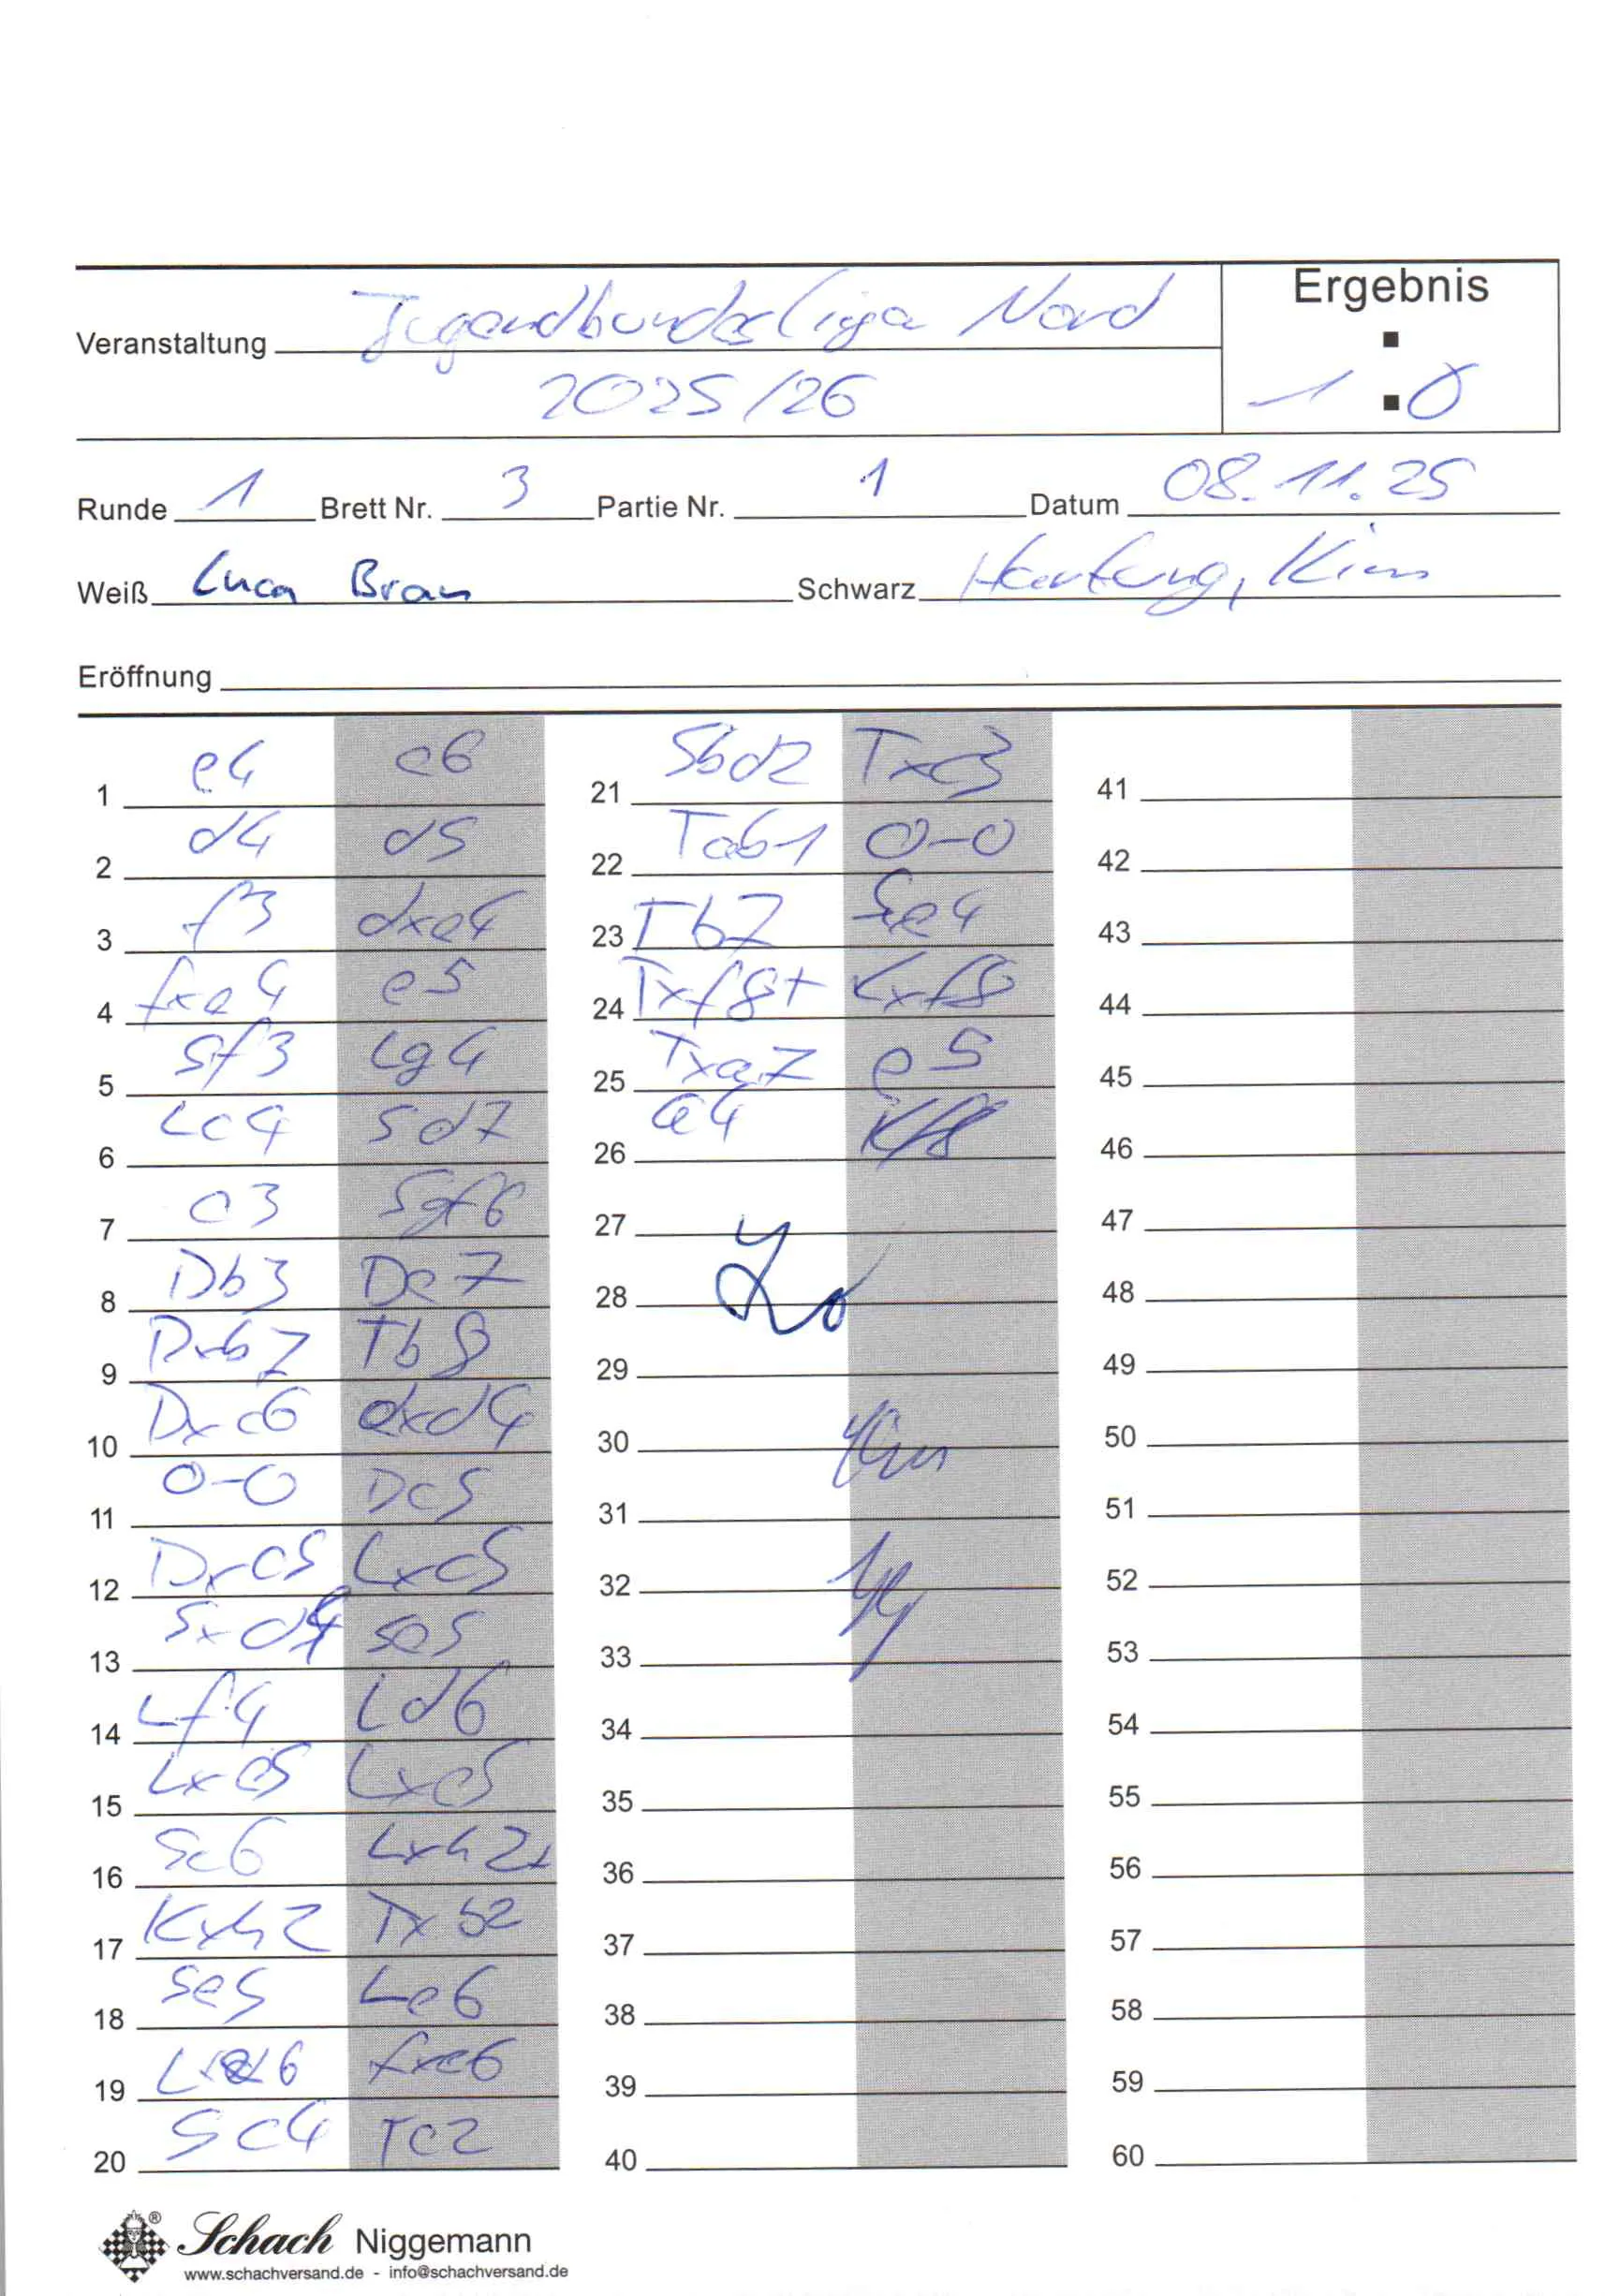 Ergebnis
Veranstaltung Jugendbundesliga Nord
2025/26
1 : 0
Runde 1 Brett Nr. 3 Partie Nr. 1 Datum 08.11.25
Weiß Luca Braun Schwarz Hartung, Kim
Eröffnung
1 e4 c6
2 d4 d5
3 f3 dxe4
4 fxe4 e5
5 Sf3 Lg4
6 Lc4 Sd7
7 c3 Sgf6
8 Db3 De7
9 Dxb7 Tb8
10 Dxc6 exd4
11 0-0 Dc5
12 Dxc5 Lxc5
13 Sxd4 Se5
14 Lf4 Ld6
15 Lxe5 Lxe5
16 Sc6 Lxh2+
17 Kxh2 Txb2
18 Se5 Le6
19 Lxe6 fxe6
20 Sc4 Tc2
21 Sbd2 Txc3
22 Tab1 0-0
23 Tb7 Se4
24 Txf8+ Kxf8
25 Txa7 e5
26 a4
27
28
29
30
31
32
33
34
35
36
37
38
39
40
41
42
43
44
45
46
47
48
49
50
51
52
53
54
55
56
57
58
59
60
Schach Niggemann
www.schachversand.de - info@schachversand.de